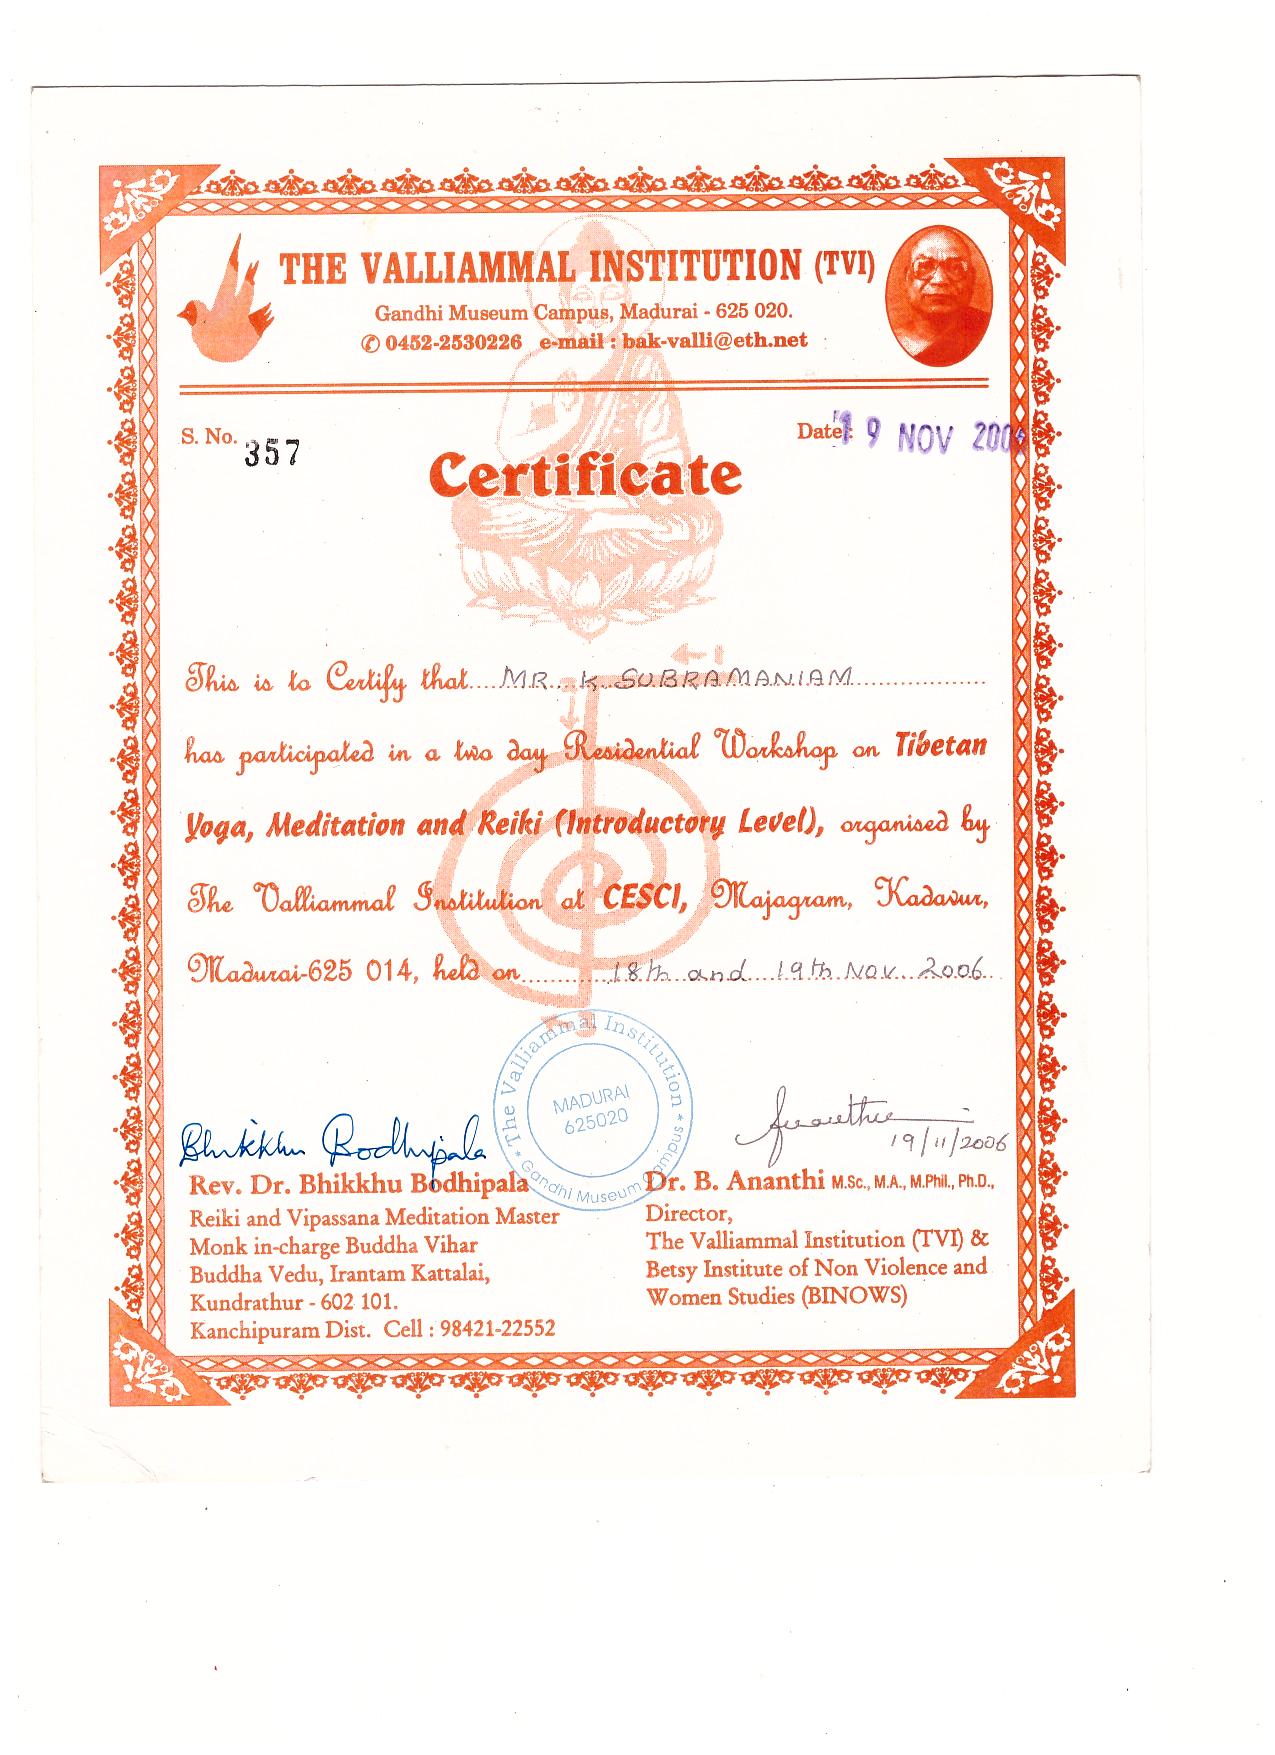 THE VALLIAMMAL INSTITUTION (TVI)
Gandhi Museum Campus, Madurai - 625 020.
✆ 0452-2530226 e-mail : bak-valli@eth.net
S. No. 357
Date : 19 NOV 2006
Certificate
This is to Certify that MR. K. SUBRAMANIAM
has participated in a two day Residential Workshop on Tibetan
Yoga, Meditation and Reiki (Introductory Level), organised by
The Valliammal Institution at CESCI, Majagram, Kadavur,
Madurai-625 014, held on 18th and 19th Nov. 2006
The Valliammal Institution
* Gandhi Museum Campus *
MADURAI
625020
Bhikkhu Bodhipala
Ananthi
19/11/2006
Rev. Dr. Bhikkhu Bodhipala
Reiki and Vipassana Meditation Master
Monk in-charge Buddha Vihar
Buddha Vedu, Irantam Kattalai,
Kundrathur - 602 101.
Kanchipuram Dist. Cell : 98421-22552
Dr. B. Ananthi M.Sc., M.A., M.Phil., Ph.D.,
Director,
The Valliammal Institution (TVI) &
Betsy Institute of Non Violence and
Women Studies (BINOWS)